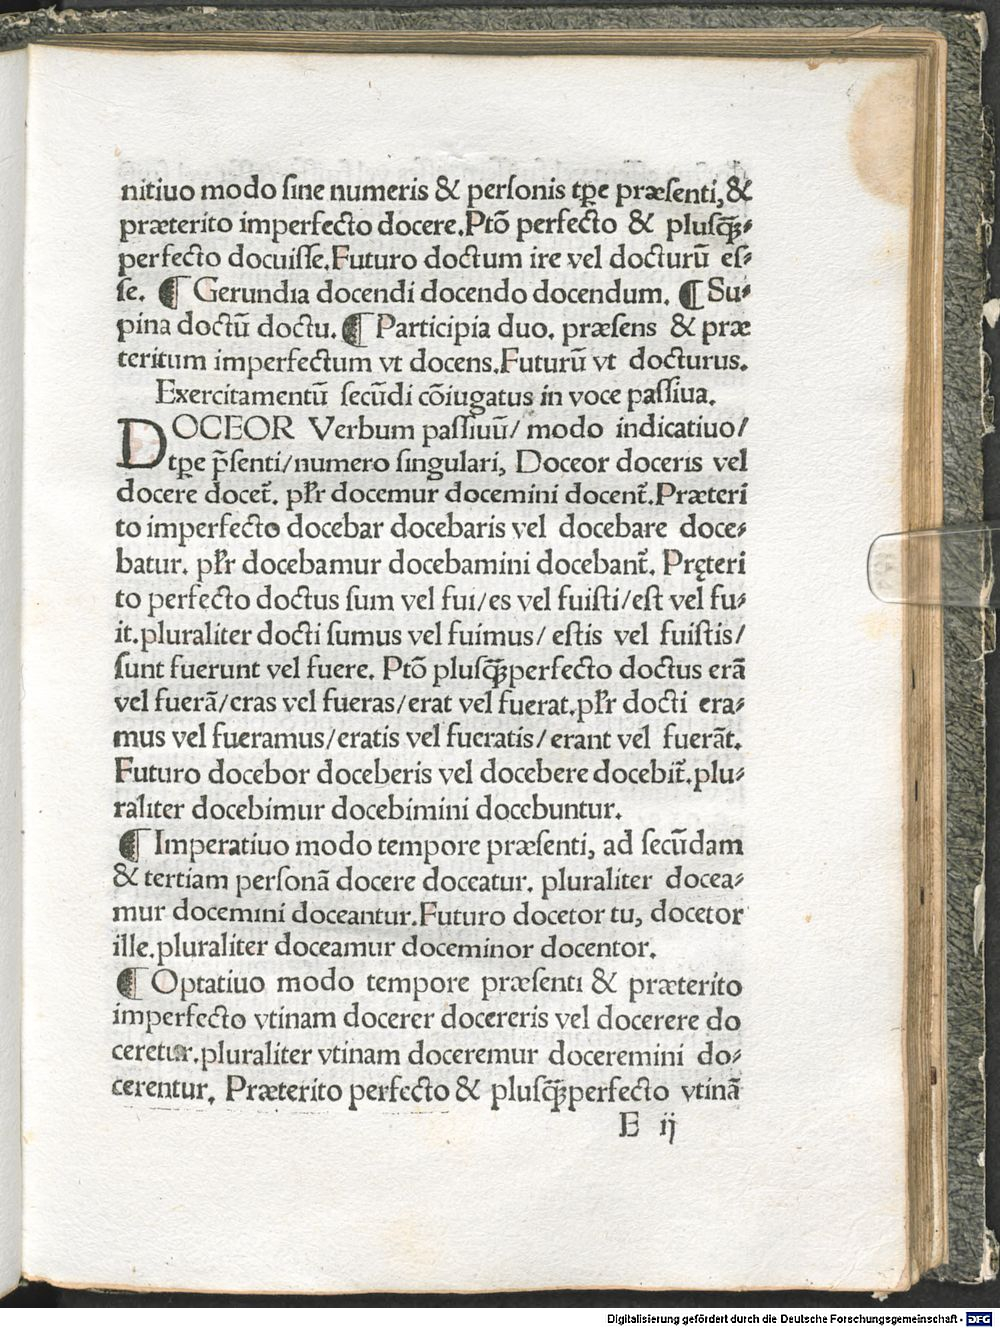 nitiuo modo ſine numeris & perſonis tꝑe præſenti, &
præterito imperfecto docere. Ptõ perfecto & pluſꝙ̃⸗
perfecto docuiſſe. Futuro doctum ire vel docturũ eſ⸗
ſe. ¶ Gerundia docendi docendo docendum. ¶ Su⸗
pina doctũ doctu. ¶ Participia duo. præſens & præ
teritum imperfectum vt docens. Futurũ vt docturus.
Exercitamentũ ſecũdi cõiugatus in voce paſſiua.
DOCEOR Verbum paſſiuũ/ modo indicatiuo/
tꝑe p̃ſenti/numero ſingulari, Doceor doceris vel
docere docet̃. pl̃r docemur docemini docent̃. Præteri
to imperfecto docebar docebaris vel docebare doce⸗
batur. pl̃r docebamur docebamini docebant̃. Pręteri
to perfecto doctus ſum vel fui/es vel fuiſti/eſt vel fu⸗
it. pluraliter docti ſumus vel fuimus/ eſtis vel fuiſtis/
ſunt fuerunt vel fuere. Ptõ pluſꝙ̃perfecto doctus erã
vel fuerã/eras vel fueras/erat vel fuerat. pl̃r docti era⸗
mus vel fueramus/eratis vel fueratis/erant vel fuerãt.
Futuro docebor doceberis vel docebere docebit̃. plu⸗
raliter docebimur docebimini docebuntur.
¶ Imperatiuo modo tempore præſenti, ad ſecũdam
& tertiam perſonã docere doceatur. pluraliter docea⸗
mur docemini doceantur. Futuro docetor tu, docetor
ille. pluraliter doceamur doceminor docentor.
¶ Optatiuo modo tempore præſenti & præterito
imperfecto vtinam docerer docereris vel docerere do
ceretur. pluraliter vtinam doceremur doceremini do⸗
cerentur. Præterito perfecto & pluſꝙ̃perfecto vtinã
E ij
Digitalisierung gefördert durch die Deutsche Forschungsgemeinschaft - DFG